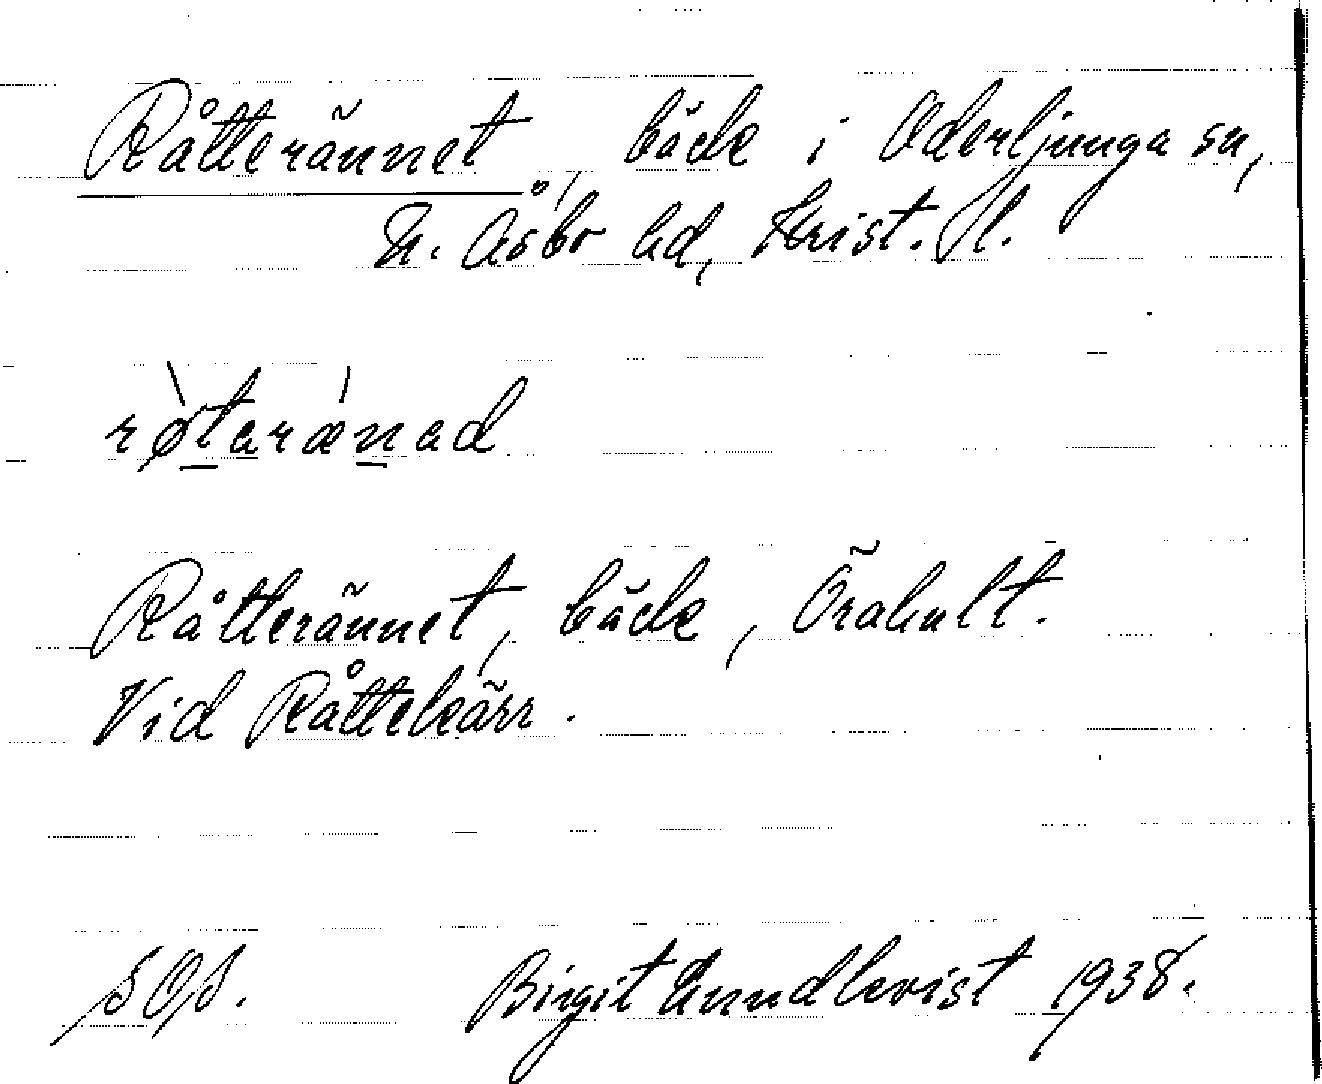 Råtterännet, bäck i Oderljunga sn,
N. Åsbo hd, Krist. l.
røtarænad
Råtterännet, bäck, Örahult.
Vid Råttekärr.
SOS. Birgit Lundkvist 1938.